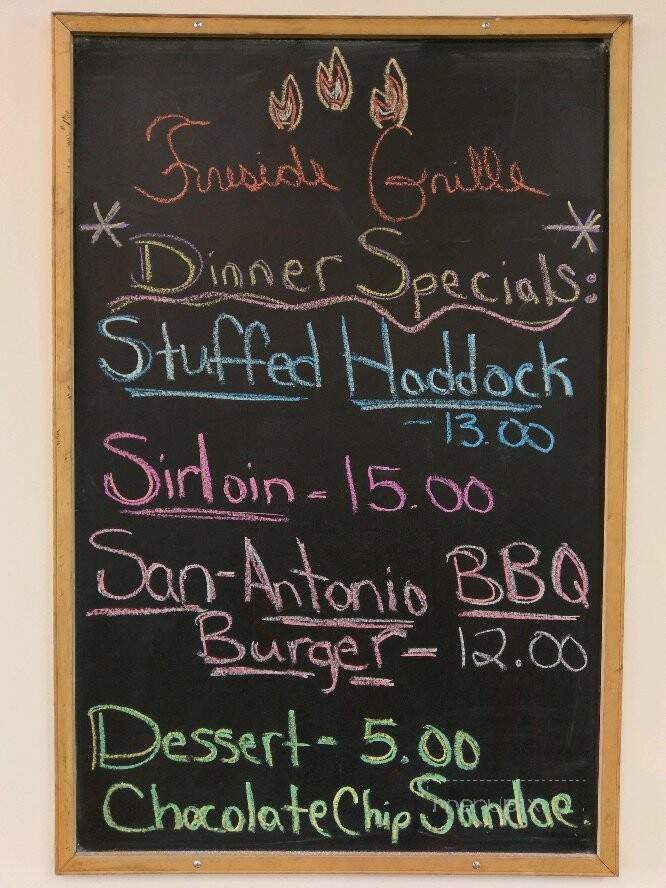 Fireside Grille
* Dinner Specials: *
Stuffed Haddock
-13.00
Sirloin - 15.00
San-Antonio BBQ
Burger - 12.00
Dessert - 5.00
Chocolate Chip Sandae.